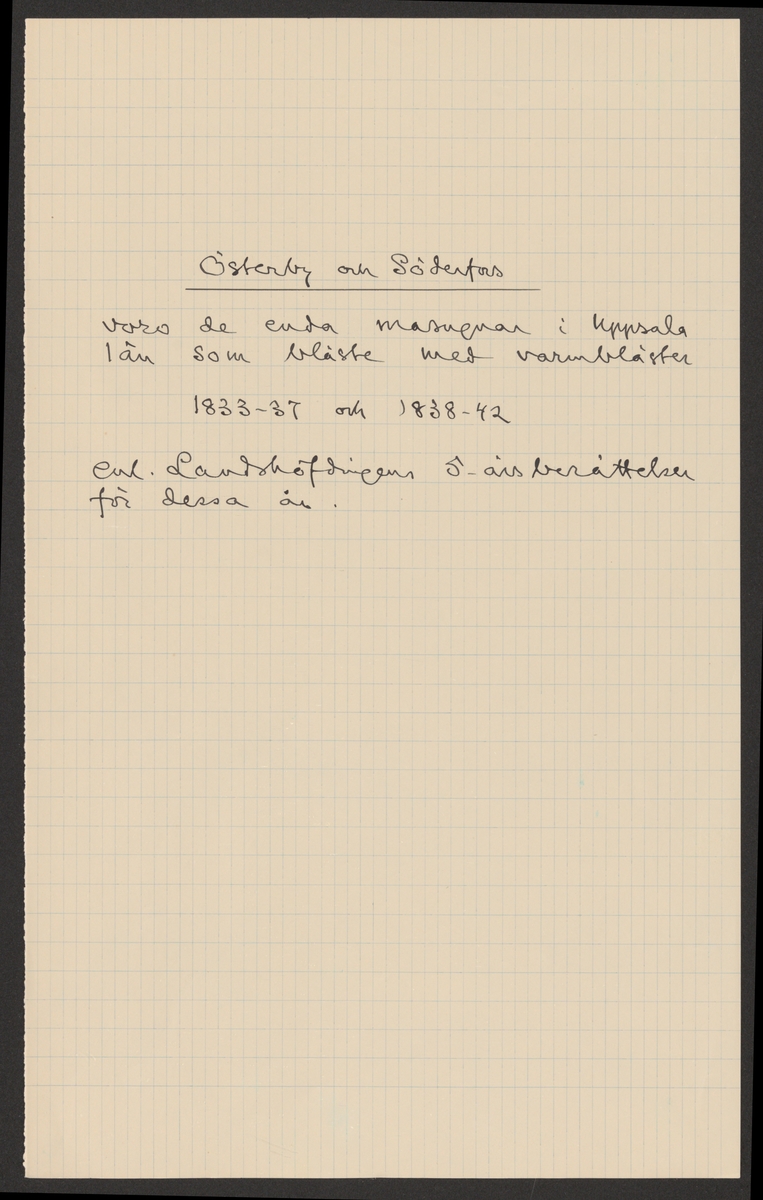 Österby och Söderfors
voro de enda masugnar i Uppsala
län som blåste med varmbläster
1833-37 och 1838-42
enl. Landshöfdingens 5-årsberättelser
för dessa år.